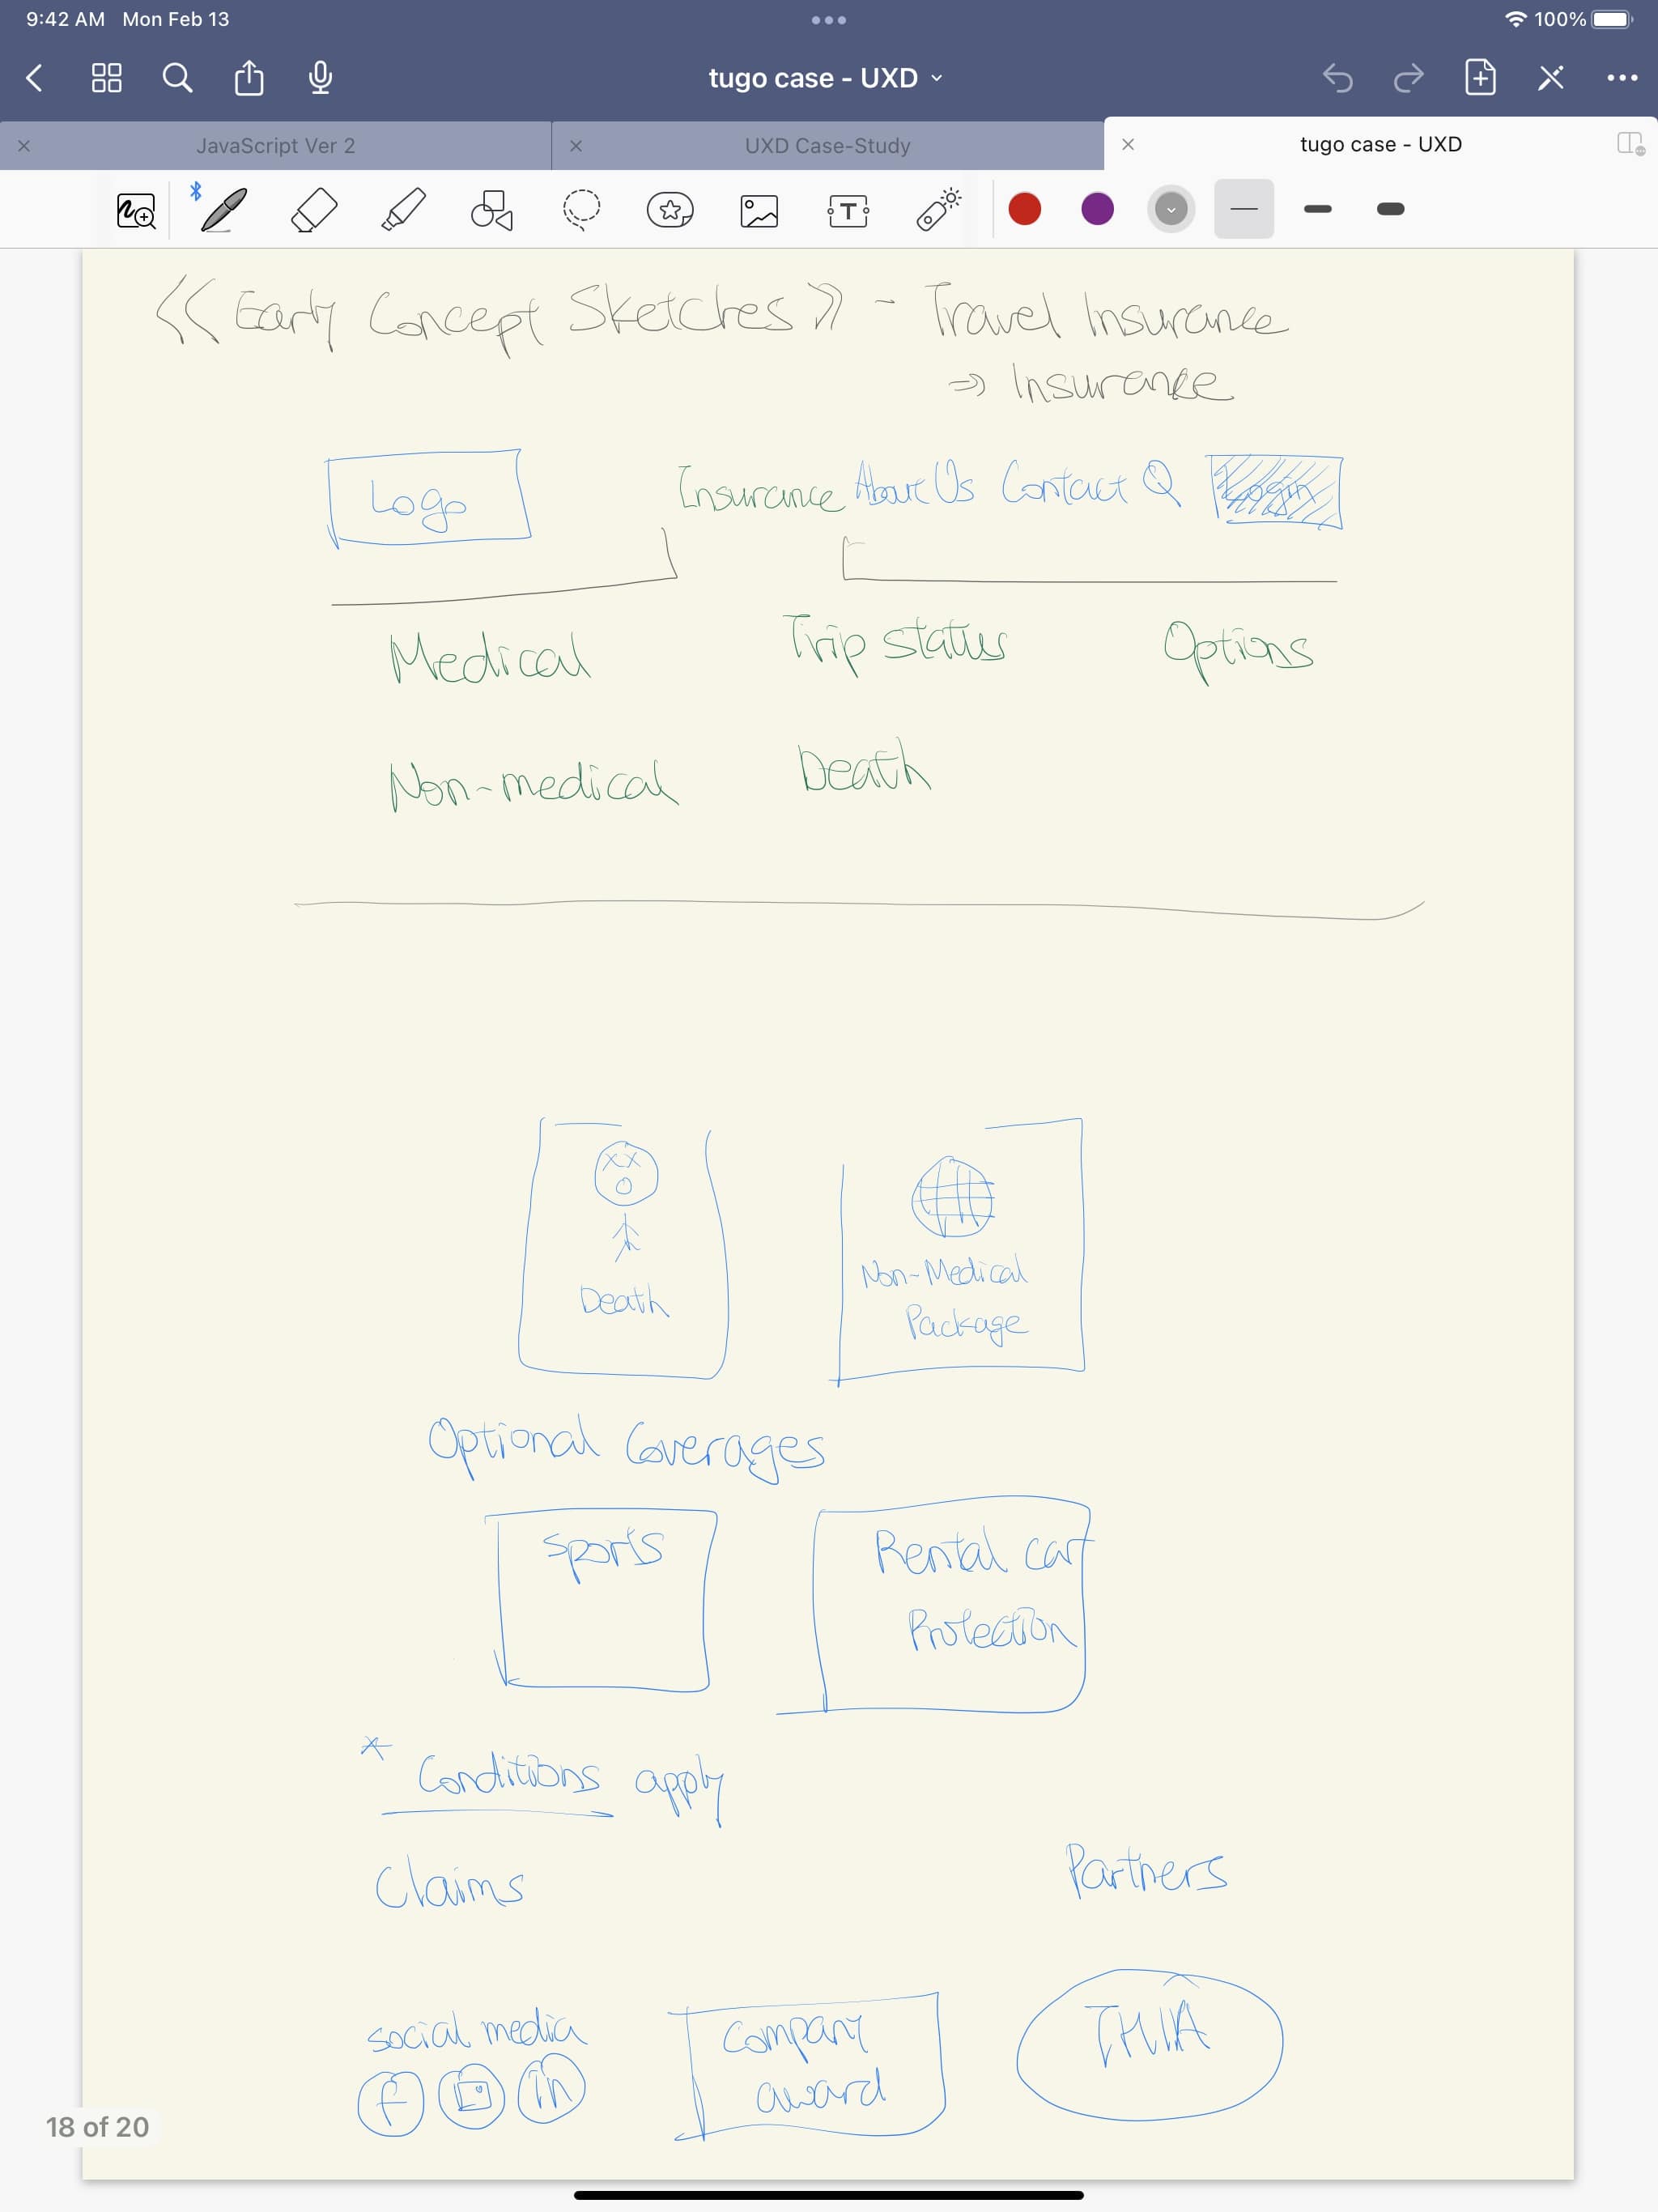 9:42 AM Mon Feb 13
100%
tugo case - UXD
JavaScript Ver 2
UXD Case-Study
tugo case - UXD
T
《Early Concept Sketches》 - Travel Insurance
⇒ Insurance
Logo
Insurance About Us Contact Login
Medical Trip status Options
Non-medical Death
Death
Non-Medical
Package
Optional Coverages
Sports
Rental car
Protection
* Conditions apply
Claims
Partners
social media
f in
Company
award
THIA
18 of 20